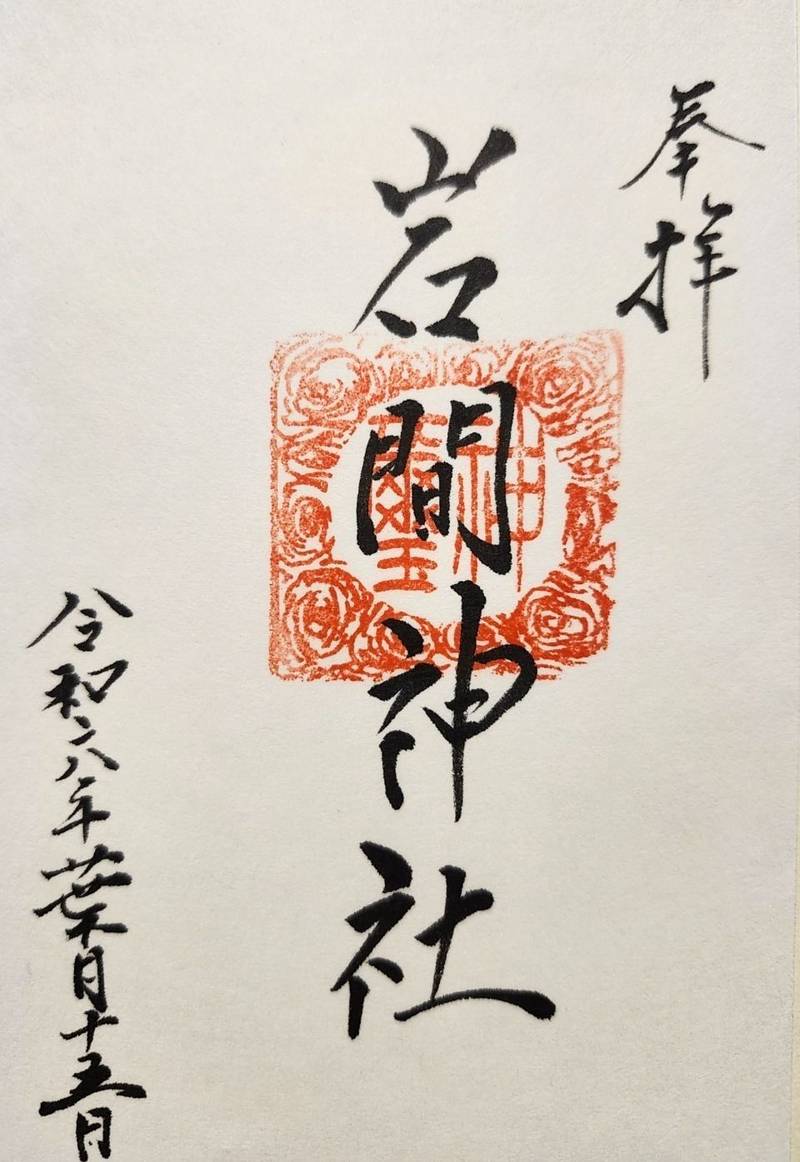 奉拝
岩間神社
神璽
令和六年葉月十五日